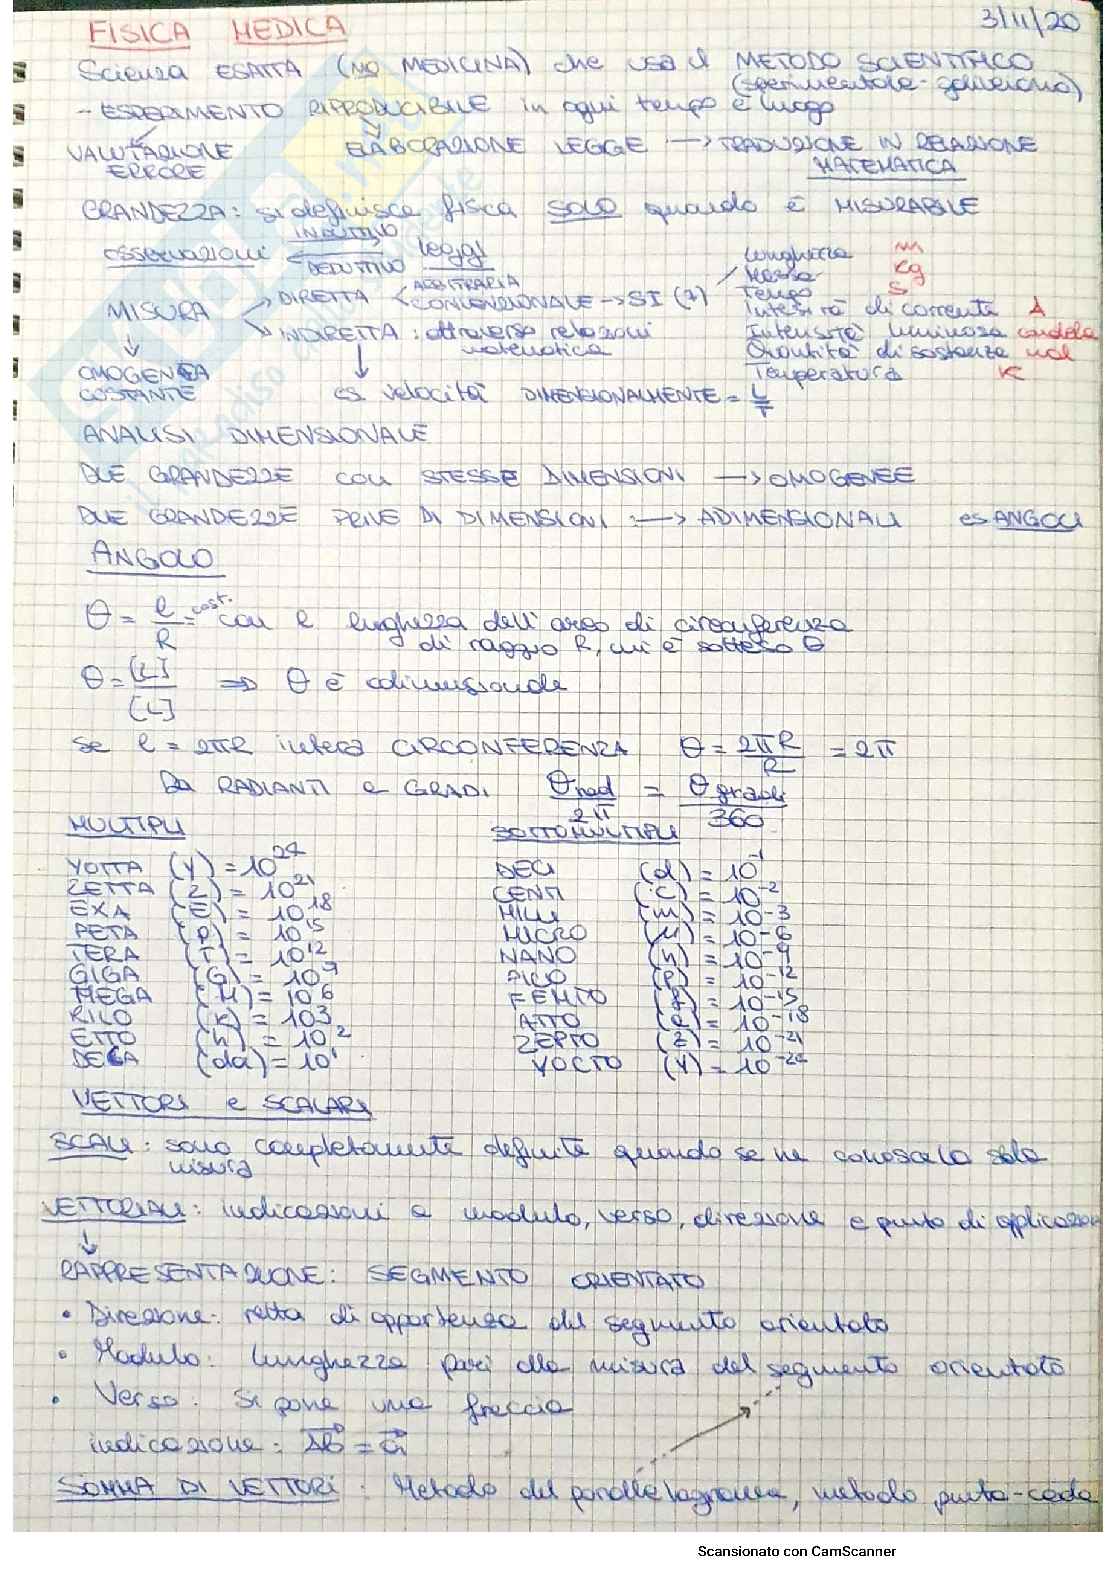 FISICA MEDICA 3/11/20
Scienza ESATTA (NO MEDICINA) che usa il METODO SCIENTIFICO
(sperimentale - galileiano)
- ESPERIMENTO RIPRODUCIBILE in ogni tempo e luogo
VALUTAZIONE ERRORE
ELABORAZIONE LEGGE → TRADUZIONE IN RELAZIONE MATEMATICA
GRANDEZZA: si definisce fisica SOLO quando è MISURABILE
osservazioni INDUTTIVO DEDUTTIVO leggi
MISURA → DIRETTA < ARBITRARIA CONVENZIONALE → SI (7)
Lunghezza m
Massa Kg
Tempo s
Intesità di corrente A
Intensità luminosa candela
Quantità di sostanza mol
Temperatura K
→ INDIRETTA: attraverso relazioni matematica
OMOGENEA COSTANTE
es velocità DIMENSIONALMENTE = L/T
ANALISI DIMENSIONALE
DUE GRANDEZZE con STESSE DIMENSIONI → OMOGENEE
DUE GRANDEZZE PRIVE DI DIMENSIONI → ADIMENSIONALI es ANGOLI
ANGOLO
θ = l/R = cost. con l lunghezza dell'arco di circonferenza
di raggio R, cui è sotteso θ
θ = [L]/[L] ⇒ θ è adimensionale
Se l = 2πR intera CIRCONFERENZA θ = 2πR/R = 2π
Da RADIANTI a GRADI θrad/2π = θgradi/360
MULTIPLI
YOTTA (Y) = 10^24
ZETTA (Z) = 10^21
EXA (E) = 10^18
PETA (P) = 10^15
TERA (T) = 10^12
GIGA (G) = 10^9
MEGA (M) = 10^6
KILO (K) = 10^3
ETTO (h) = 10^2
DECA (da) = 10^1
SOTTOMULTIPLI
DECI (d) = 10^-1
CENTI (c) = 10^-2
MILLI (m) = 10^-3
MICRO (μ) = 10^-6
NANO (n) = 10^-9
PICO (p) = 10^-12
FEMTO (f) = 10^-15
ATTO (a) = 10^-18
ZEPTO (z) = 10^-21
YOCTO (y) = 10^-24
VETTORI e SCALARI
SCALI: sono completamente definite quando se ne conosce la sola
misura
VETTORIALI: indicazioni a modulo, verso, direzione e punto di applicazion
RAPPRESENTAZIONE: SEGMENTO ORIENTATO
• Direzione: retta di appartenza del segmento orientato
• Modulo: lunghezza pari alla misura del segmento orientato
• Verso: si pone una freccia
indicazione: AB = a
SOMMA DI VETTORI: Metodo del parallelogramma, metodo punta-coda
Scansionato con CamScanner